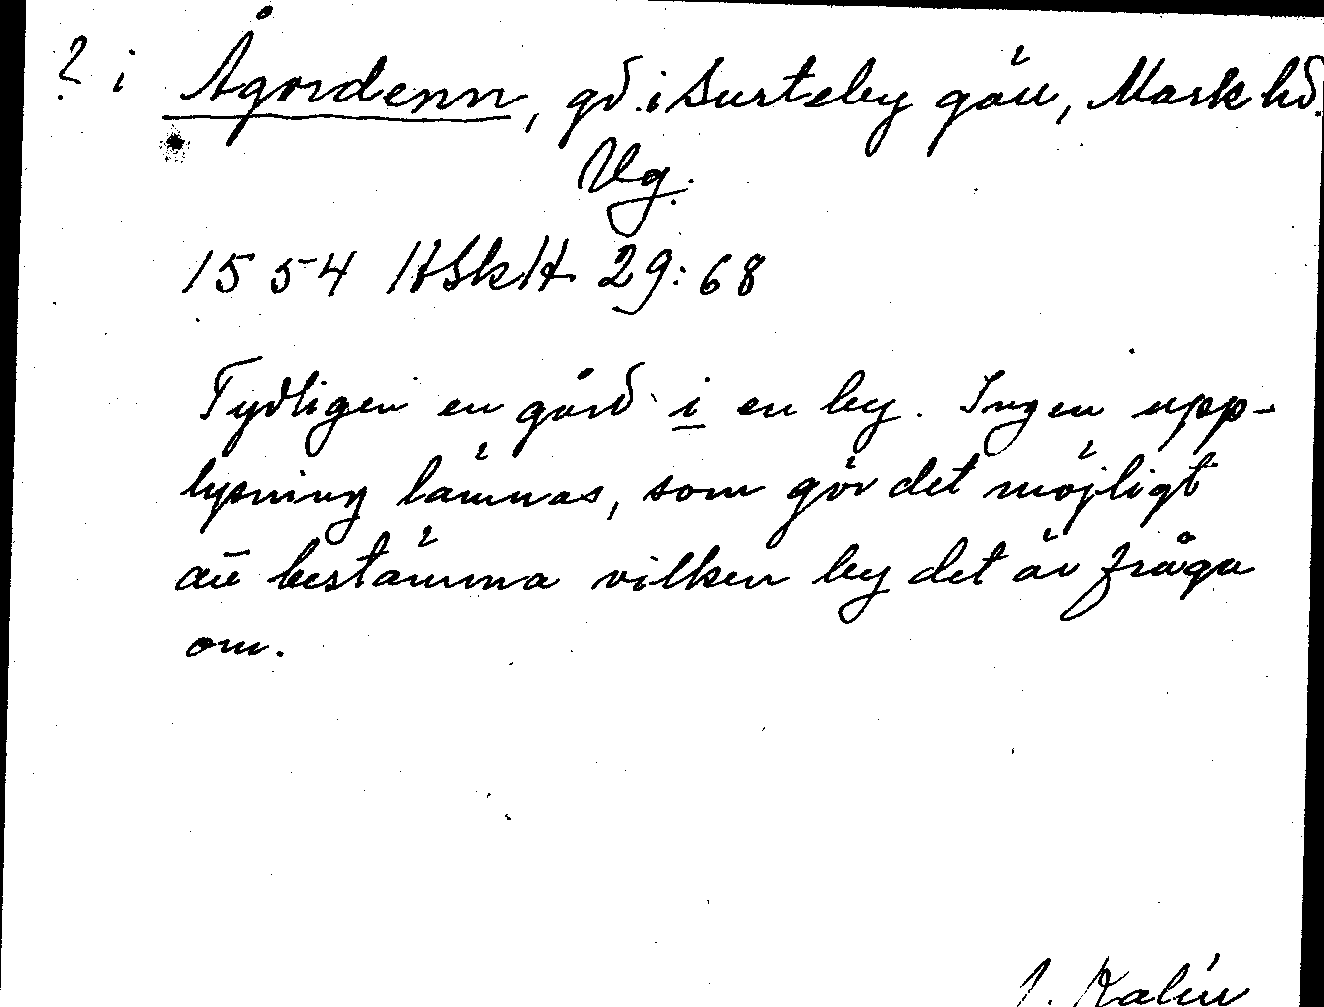 ? i Ågordenn, gd. i Surteby gäll, Mark hd.
Vg.
1554 HSkH 29:68
Tydligen en gård i en by. Ingen upp-
lysning lämnas, som gör det möjligt
att bestämma vilken by det är fråga
om.
J. Kalén